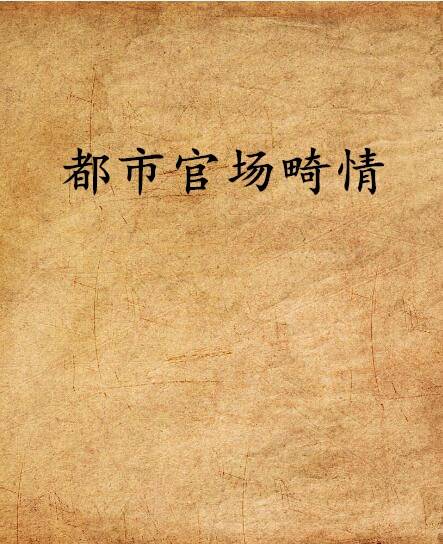 都市官场畸情